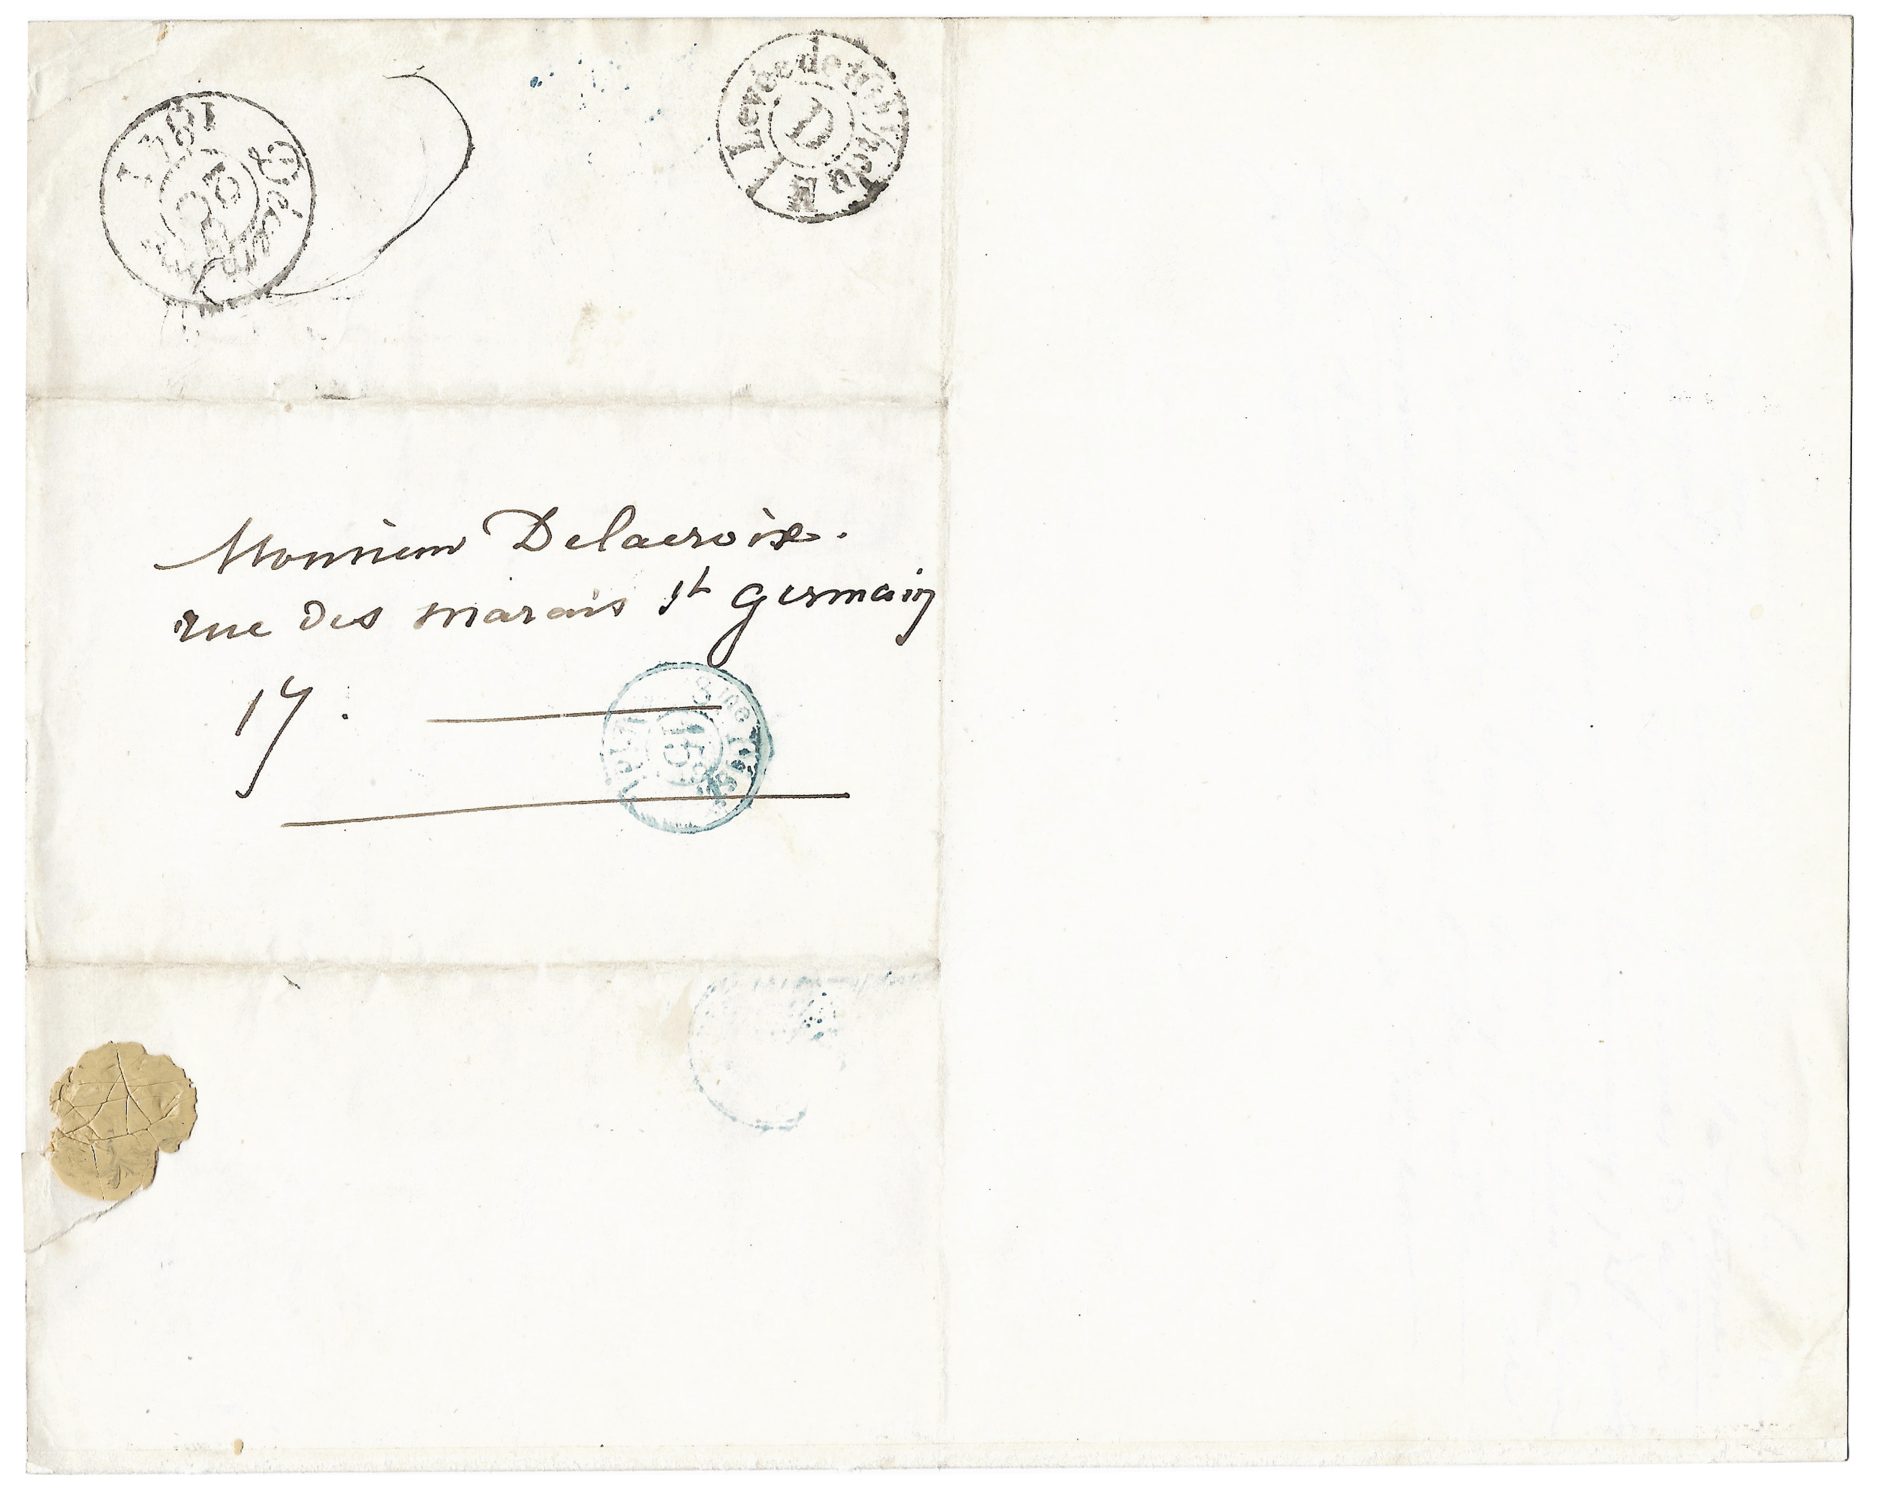 Levée de
D
1841
Monsieur Delacroix.
rue des marais St Germain
17.
15